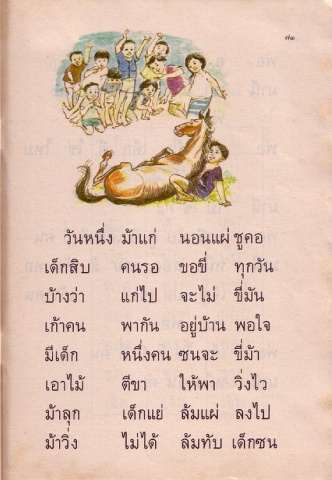 ๘๓
วันหนึ่ง ม้าแก่ นอนแผ่ ชูคอ
เด็กสิบ คนรอ ขอขี่ ทุกวัน
บ้างว่า แก่ไป จะไม่ ขี่มัน
เก้าคน พากัน อยู่บ้าน พอใจ
มีเด็ก หนึ่งคน ซนจะ ขี่ม้า
เอาไม้ ตีขา ให้พา วิ่งไว
ม้าลุก เด็กแย่ ล้มแผ่ ลงไป
ม้าวิ่ง ไม่ได้ ล้มทับ เด็กซน